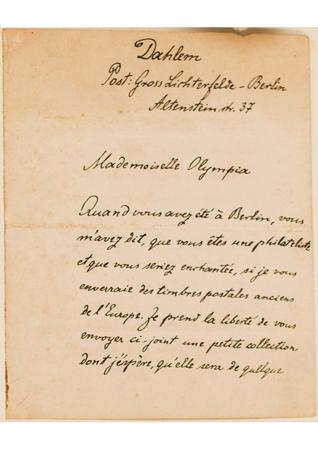 Dahlem
Post: Gross Lichterfelde - Berlin
Altenstein str. 37
Mademoiselle Olympia
Quand vous avez été à Berlin, vous
m'avez dit, que vous êtes une philatéliste
et que vous seriez enchantée, si je vous
enverraie des timbres postales anciens
de l'Europe. Je prend la liberté de vous
envoyer ci-joint une petite collection
dont j'éspère, qu'elle sera de quelque